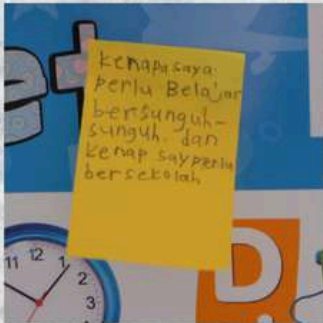 et
kenapa saya
perlu Belajar
bersunguh-
sunguh. dan
kenap say perlu
bersekolah
11 12 1
2
3
D